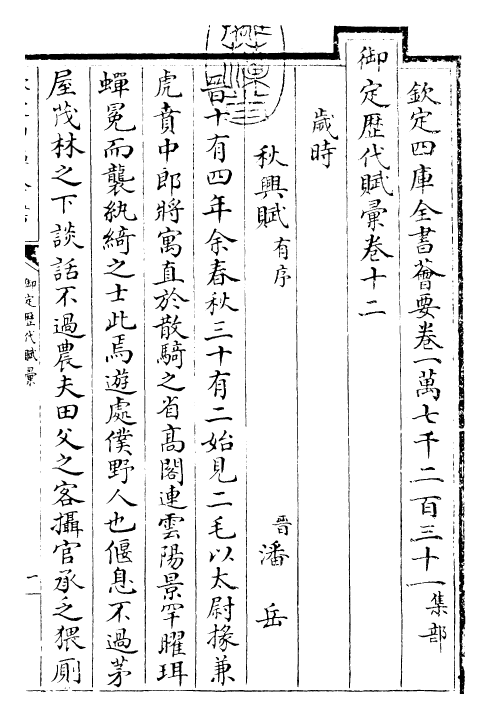 欽定四庫全書薈要卷一萬七千二百三十一集部
御定歴代賦彙卷十二
歲時
秋興賦有序 晉潘岳
晉十有四年余春秋三十有二始見二毛以太尉掾兼
虎賁中郎將寓直於散騎之省高閣連雲陽景罕曜珥
蟬冕而襲紈綺之士此焉遊處僕野人也偃息不過茅
屋茂林之下談話不過農夫田父之客攝官承乏猥厠
御定歴代賦彙
一